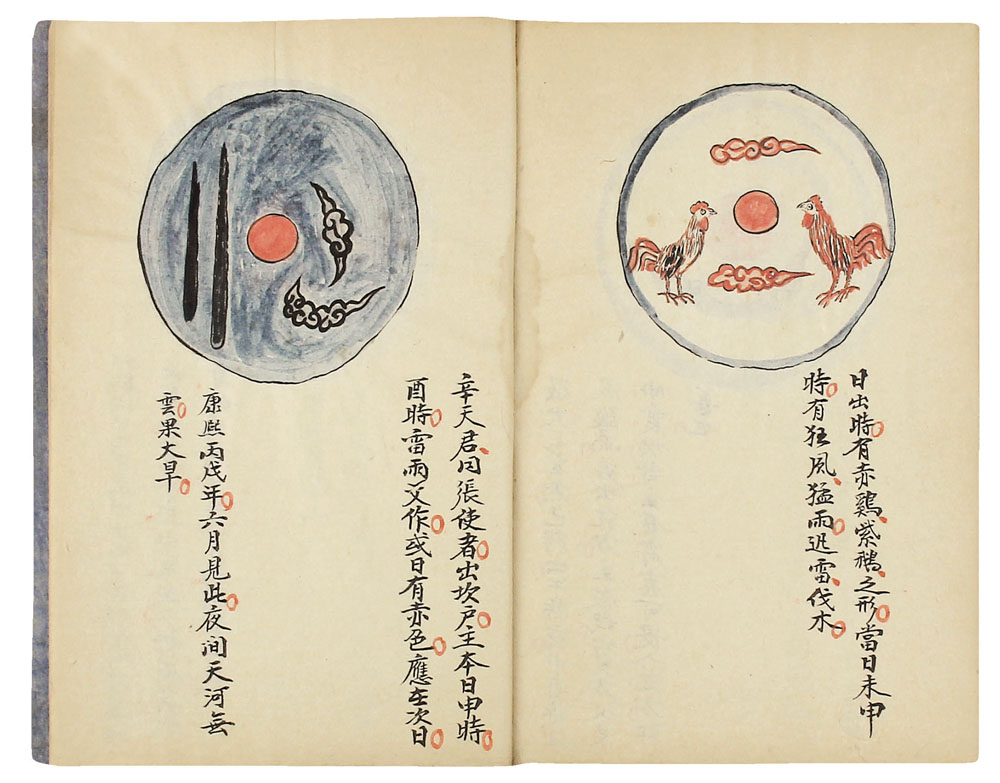 日出時有赤鷄紫之形當日未申
時有狂風猛雨迅雷伐木
辛天君同張使者出坎户主本日申時
酉時雷雨交作或日有赤色應在次日
康熙丙戌年六月見此夜間天河無
雲果大旱